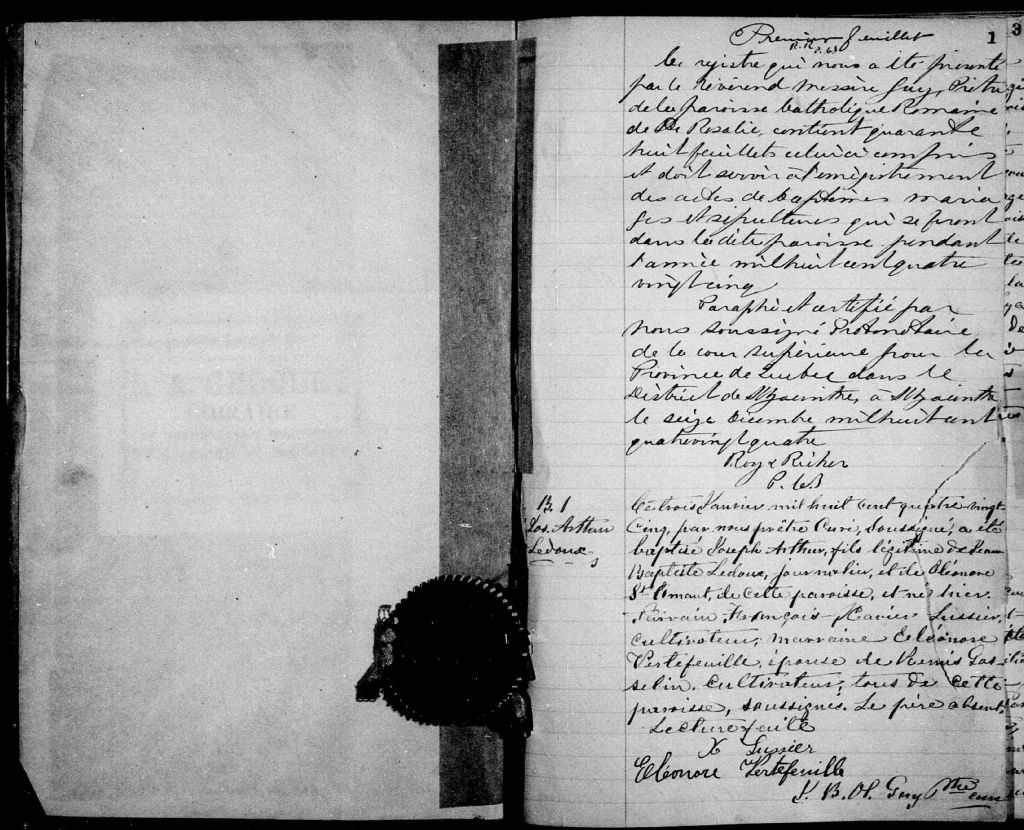 Premier feuillet
R.R. P.C.S
1
3
Ce registre qui nous a été présenté
par le Révérend Messire Guy, Prêtre
de la paroisse Catholique Romaine
de Ste Rosalie, contient quarante
huit feuillets celui ci compris
et doit servir à l'enrégistrement
des actes de baptêmes maria
ges et sépultures qui se feront
dans la dite paroisse pendant
l'année mil huit cent quatre
vingt cinq
Paraphé et certifié par
nous soussigné Protonotaire
de la cour supérieure pour la
Province de Québec dans le
District de St Hyacinthe, à St Hyacinthe
le seize Décembre mil huit cent
quatre vingt quatre
Roy & Richer
P.C.S
B. 1
Jos. Arthur
Ledoux
Ce trois Janvier mil huit cent quatre vingt
Cinq, par nous prêtre Curé, Soussigné, a été
baptisé Joseph Arthur, fils légitime de Jean
Baptiste Ledoux, journalier, et de Eléonore
St Amant, de cette paroisse, et né hier.
Parrain François Xavier Lussier,
cultivateur; marraine Eléonore
Vertefeuille, épouse de Rémis Gos
selin, cultivateur, tous de cette
paroisse, soussignés. Le père absent.
Lecture faite
X Lussier
Eléonore Vertefeuille
J. B. O. Guy Ptre curé